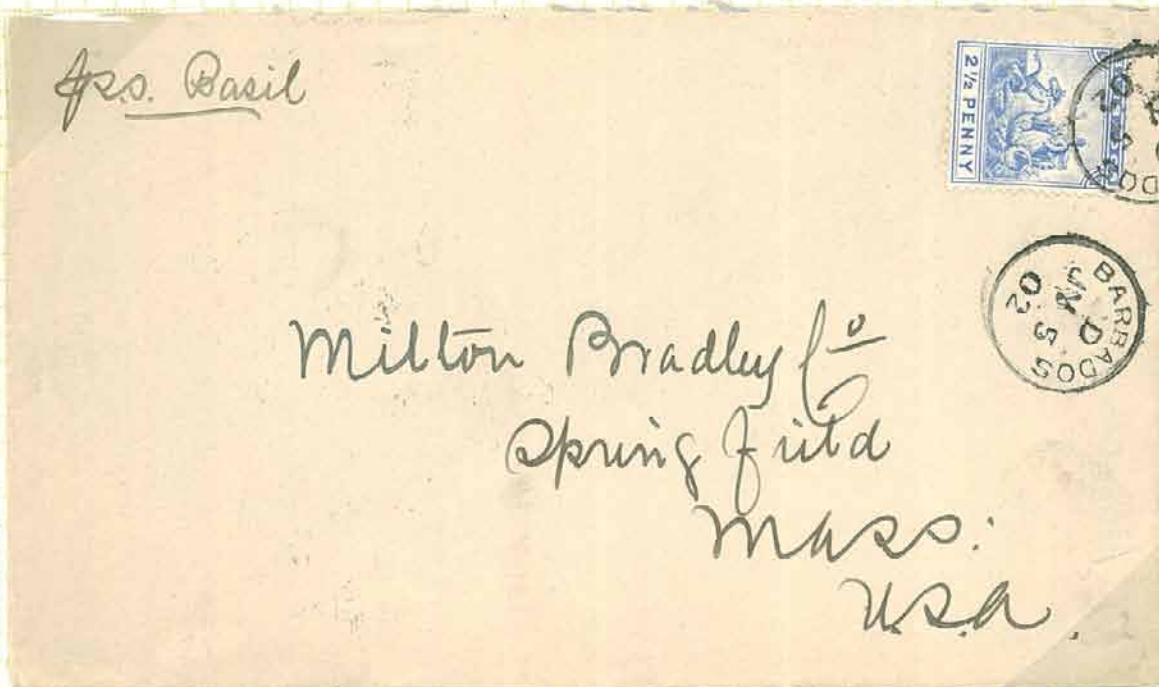 p s.s. Basil
2½ PENNY
DOS
5
02
BARBADOS
D
JN 5
02
Milton Bradley Co
Springfield
Mass.
U.S.A.